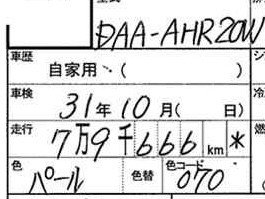 DAA-AHR20W
車歴 自家用・( )
車検 31年10月( 日)
走行 7万9千666km *
色 パール 色替 色コード 070